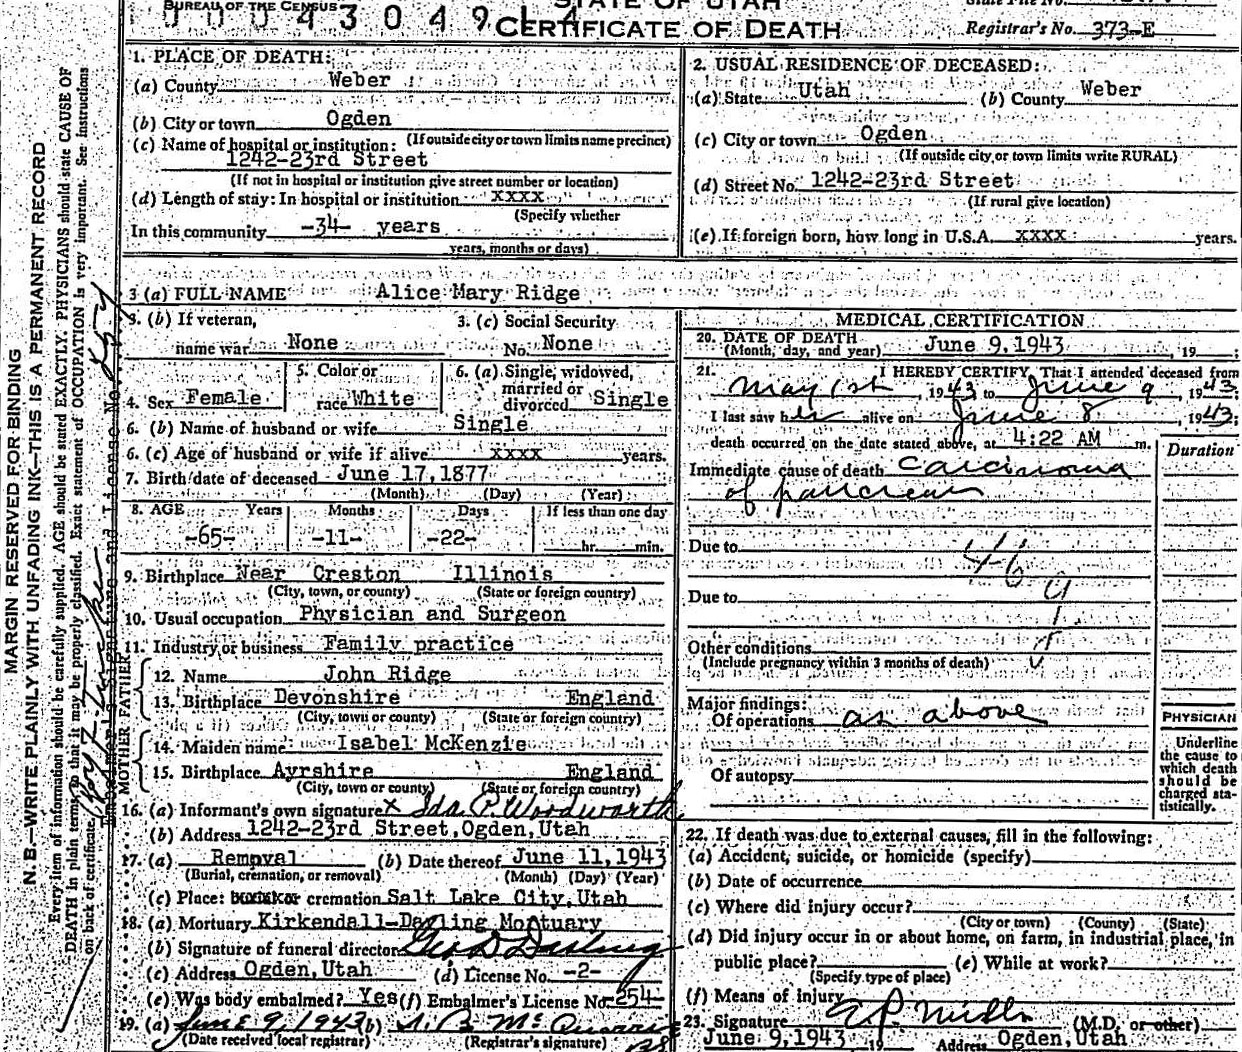 BUREAU OF THE CENSUS
STATE OF UTAH
1 0 0 0 4 3 0 4 9 L 4
CERTIFICATE OF DEATH
State File No.
Registrar's No. 373-E
MARGIN RESERVED FOR BINDING
N. B.—WRITE PLAINLY WITH UNFADING INK—THIS IS A PERMANENT RECORD
Every item of information should be carefully supplied. AGE should be stated EXACTLY. PHYSICIANS should state CAUSE OF
DEATH in plain terms, so that it may be properly classified. Exact statement of OCCUPATION is very important. See Instructions
on back of certificate.
1. PLACE OF DEATH:
(a) County Weber
(b) City or town Ogden
(If outside city or town limits name precinct)
(c) Name of hospital or institution:
1242-23rd Street
(If not in hospital or institution give street number or location)
(d) Length of stay: In hospital or institution xxxx
(Specify whether
In this community -34- years
years, months or days)
2. USUAL RESIDENCE OF DECEASED:
(a) State Utah (b) County Weber
(c) City or town Ogden
(If outside city or town limits write RURAL)
(d) Street No. 1242-23rd Street
(If rural give location)
(e) If foreign born, how long in U.S.A. xxxx years.
3 (a) FULL NAME Alice Mary Ridge
3. (b) If veteran,
name war None
3. (c) Social Security
No. None
4. Sex Female
5. Color or
race White
6. (a) Single, widowed,
married or
divorced Single
6. (b) Name of husband or wife Single
6. (c) Age of husband or wife if alive xxxx years.
7. Birth date of deceased June 17, 1877
(Month) (Day) (Year)
8. AGE Years Months Days If less than one day
-65- -11- -22- hr. min.
9. Birthplace Near Creston Illinois
(City, town, or county) (State or foreign country)
10. Usual occupation Physician and Surgeon
11. Industry or business Family practice
FATHER
12. Name John Ridge
13. Birthplace Devonshire England
(City, town or county) (State or foreign country)
MOTHER
14. Maiden name Isabel McKenzie
15. Birthplace Ayrshire England
(City, town or county) (State or foreign country)
16. (a) Informant's own signature x Ida P. Woodworth
(b) Address 1242-23rd Street, Ogden, Utah
17. (a) Removal (b) Date thereof June 11, 1943
(Burial, cremation, or removal) (Month) (Day) (Year)
(c) Place: cremation Salt Lake City, Utah
18. (a) Mortuary Kirkendall-Darling Mortuary
(b) Signature of funeral director Geo D Darling
(c) Address Ogden, Utah (d) License No. -2-
(e) Was body embalmed? Yes (f) Embalmer's License No. 254-
19. (a) June 9, 1943 (b)
(Date received local registrar) (Registrar's signature)
MEDICAL CERTIFICATION
20. DATE OF DEATH
(Month, day, and year) June 9, 1943, 19 ;
21. I HEREBY CERTIFY, That I attended deceased from
May 1st 1943 to June 9, 1943;
I last saw her alive on June 8, 1943;
death occurred on the date stated above, at 4:22 AM m.
Duration
Immediate cause of death Carcinoma
of pancreas
Due to
46
Due to
Other conditions
(Include pregnancy within 3 months of death)
Major findings:
Of operations as above
Of autopsy
PHYSICIAN
Underline
the cause to
which death
should be
charged sta-
tistically.
22. If death was due to external causes, fill in the following:
(a) Accident, suicide, or homicide (specify)
(b) Date of occurrence
(c) Where did injury occur?
(City or town) (County) (State)
(d) Did injury occur in or about home, on farm, in industrial place, in
public place? (e) While at work?
(Specify type of place)
(f) Means of injury
23. Signature E.P. Mills (M.D. or other)
June 9, 1943 19 Address Ogden, Utah